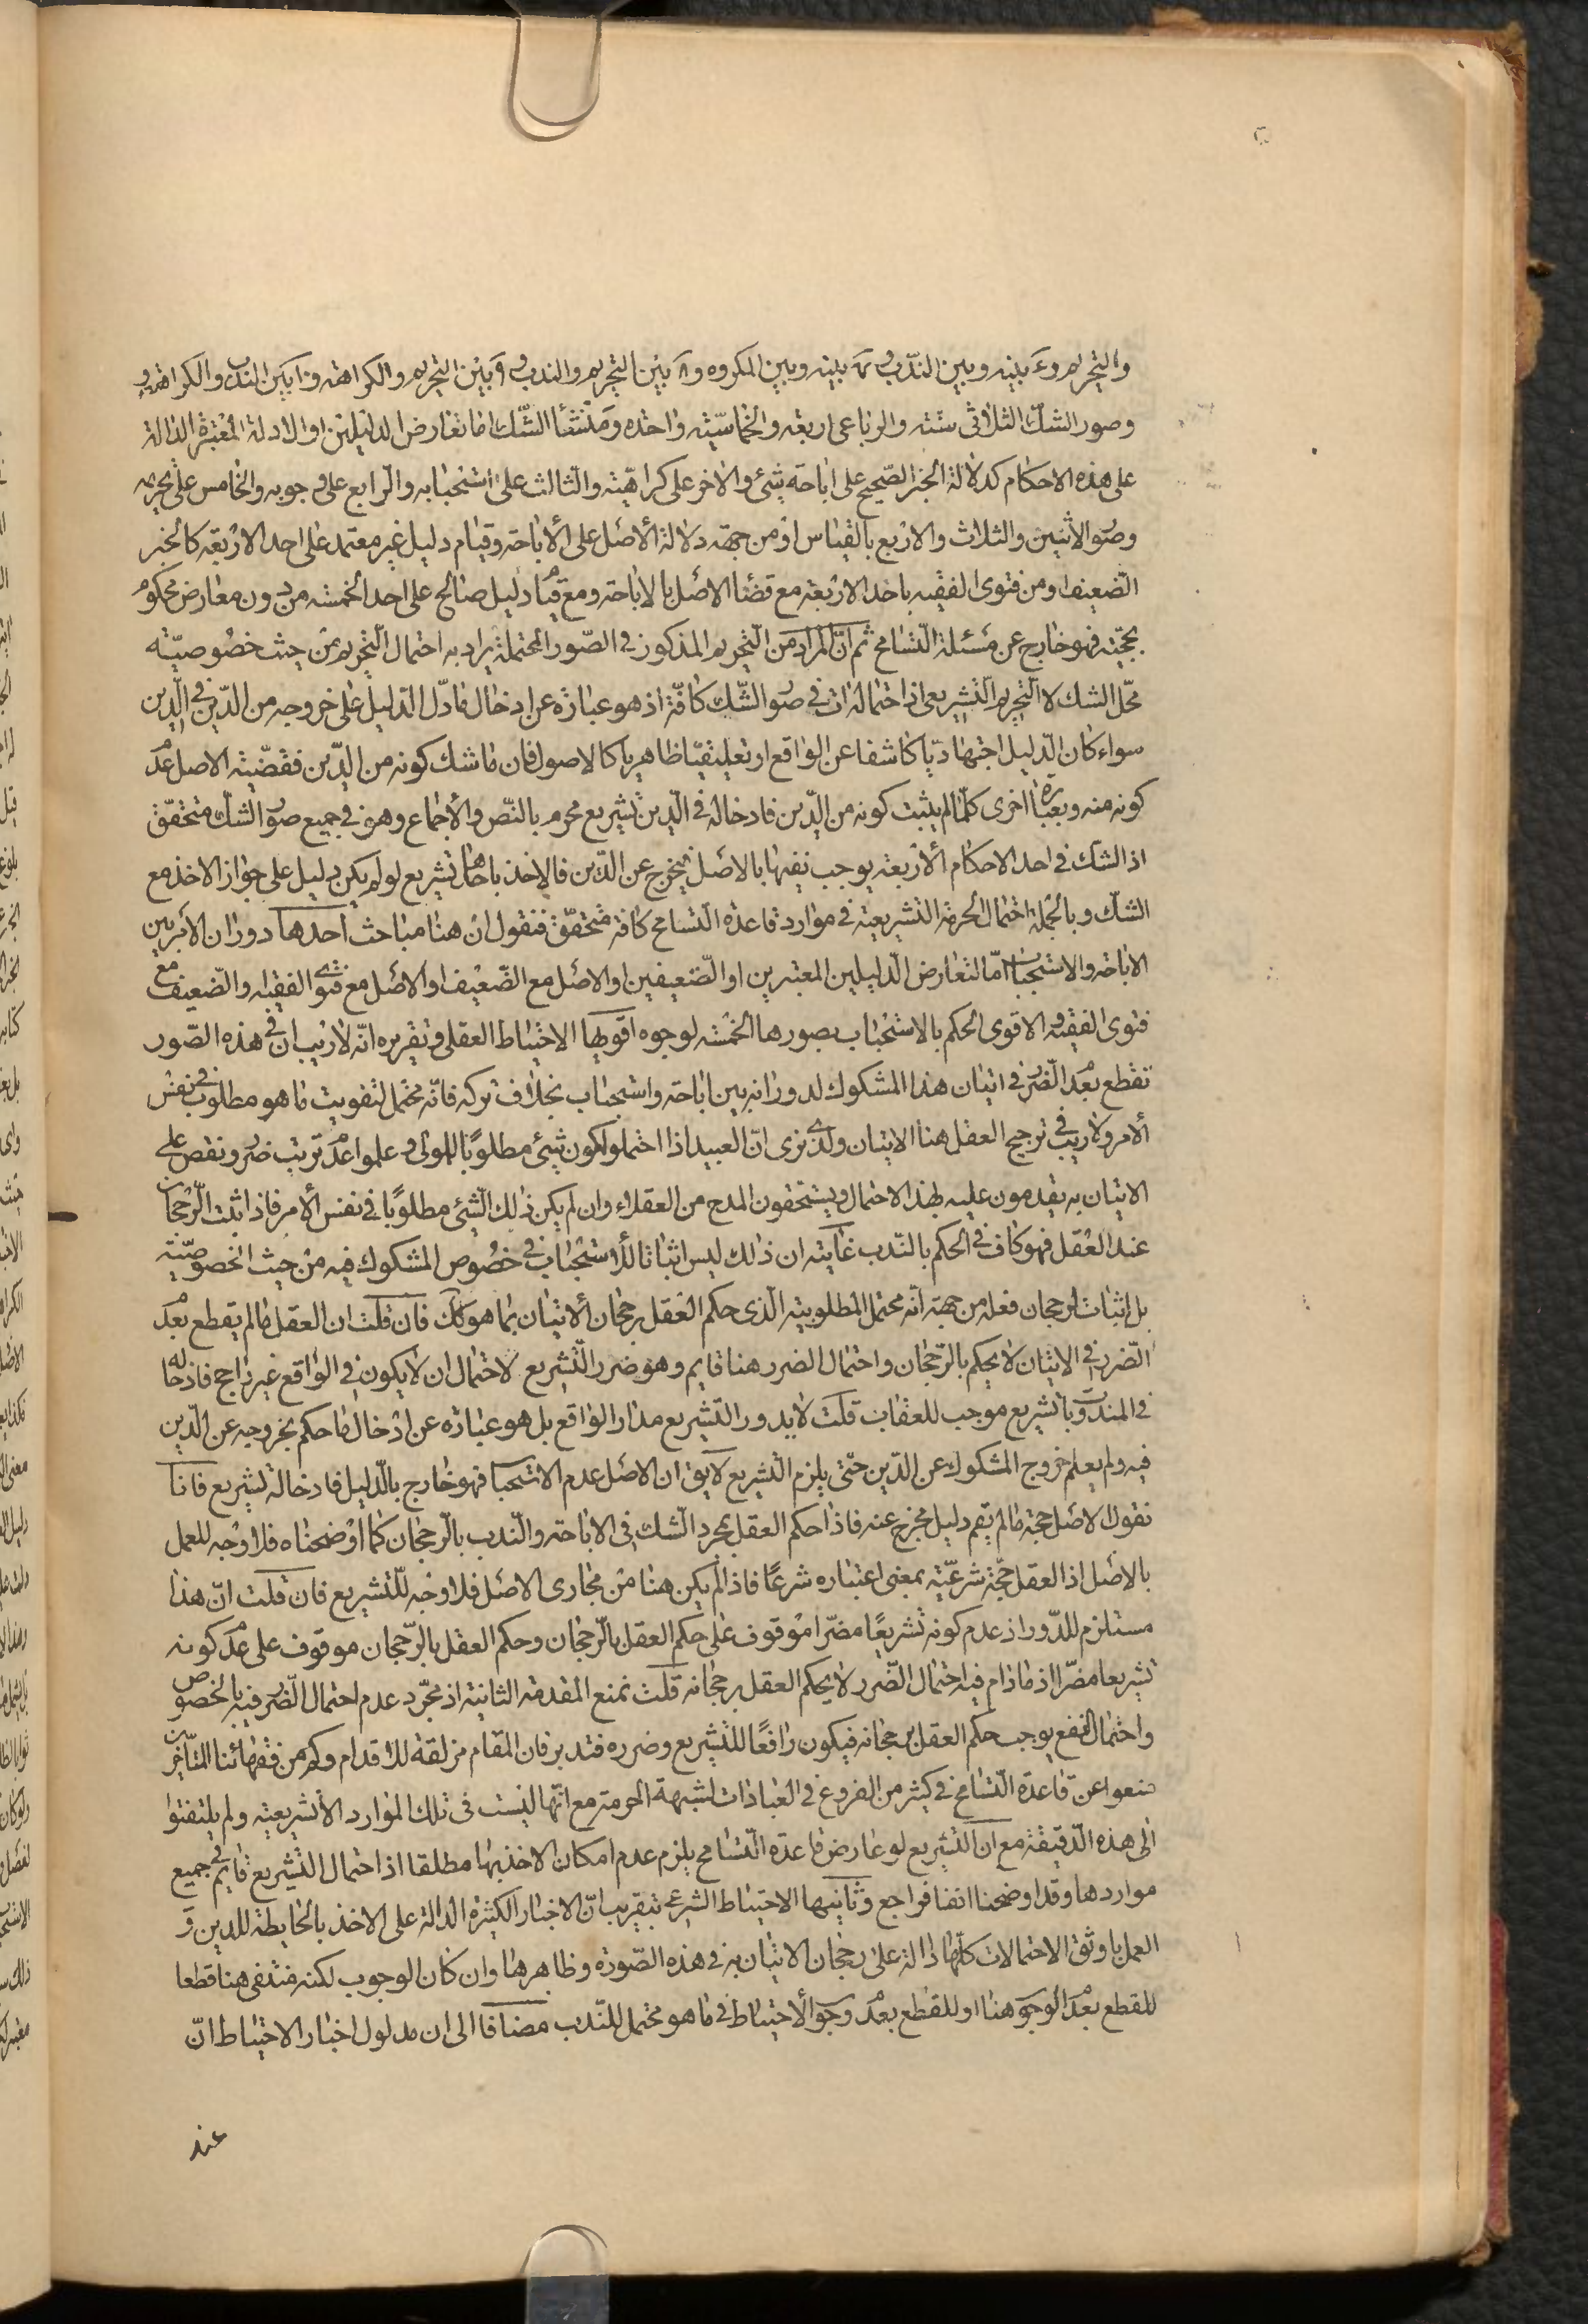 والتحريم و۶ بينه وبين الندب و۷ بينه وبين المكروه و۸ بين التحريم والندب و۹ بين التحريم والكراهة و۱۰ بين الندب والكراهة
وصور الشك الثلاثى ستة والرباعى اربعة والخماسيّة واحدة ومنشأ الشّك اما تعارض الدليلين او الادلة المعتبرة الدالة
على هذه الاحكام كدلالة الخبر الصّحيح على اباحة شئ والاخر على كراهيّته والثالث على استحبابه والرابع على وجوبه والخامس على تحريمه
وصور الاثنين والثلاث والاربع بالقياس او من جهة دلالة الأصل على الأباحة وقيام دليل غير معتمد على احد الاربعة كالخبر
الضعيف او من فتوى الفقيه باحد الاربعة مع قضاء الاصل بالاباحة ومع قيام دليل صالح على احد الخمسة من دون معارض محكوم
بحجّيته فهو خارج عن مسئلة التسامح ثم انّ المراد من التحريم المذكور فى الصّور المحتملة يراد به احتمال التّحريم من حيث خصوصيّته
محّل الشك لا التّحريم التّشريعى اذ احتماله ات فى صور الشّك كافّة اذ هو عبارة عن ادخال ما دلّ الدّليل على خروجه من الدّين فى الدّين
سواء كان الدّليل اجتهاديّا كاشفا عن الواقع او تعليقيّا ظاهريا كالاصول فان ما شك كونه من الدّين فقضّية الاصل عدم
كونه منه وبعبارة اخرى كلّما لم يثبت كونه من الدّين فادخاله فى الدّين تشريع محرم بالنّص والأجماع وهو فى جميع صور الشك متحقّق
اذ الشك فى احد الاحكام الأربعة يوجب نفيها بالاصل فيخرج عن الدّين فالاخذ باحدها تشريع لو لم يكن دليل على جواز الاخذ مع
الشّك وبالجملة احتمال الحرمة التشريعية فى موارد قاعدة التّسامح كافة متحقّق فنقول ان هنا مباحث احدها دوران الأمر بين
الاباحة والاستحباب امّا لتعارض الدّليلين المعتبرين او الضّعيفين او الاصل مع الضّعيف او الاصل مع فتوى الفقيه والضّعيف مع
فتوى الفقيه والاقوى الحكم بالاستحباب بصورها الخمسة لوجوه اقويها الاحتياط العقلى وتقريره انّه لاريب ان فى هذه الصّور
نقطع بعدم الضّرر فى اتيان هذا المشكوك لدورانه بين اباحة واستحباب بخلاف تركه فانّه محتمل لتفويت ما هو مطلوب فى نفس
الأمر ولاريب فى ترجيح العقل هنا الاتيان ولذى نرى انّ العبيد اذا احتملوا كون شئ مطلوبًا للمولى وعلموا عدم ترتّب ضرر ونقص على
الاتيان به يقدمون عليه بهذا الاحتمال ويستحقون المدح من العقلاء وان لم يكن ذلك الشّئ مطلوبًا فى نفس الأمر فاذا ثبت الرجحان
عند العقل فهو كاف فى الحكم بالندب غايته ان ذلك ليس اثباتا للأستحباب فى خصوص المشكوك فيه من حيث الخصوصيّة
بل اثبات لرجحان فعله من جهة انّه محتمل المطلوبية الّذى حكم العقل برجحان ألاتيان بما هو كك فان قلت ان العقل ما لم يقطع بعدم
الضّرر فى الاتيان لا يحكم بالرّجحان واحتمال الضرر هنا قايم وهو ضرر التّشريع لاحتمال ان لا يكون فى الواقع غير راجح فادخاله
فى المندوب تشريع موجب للعقاب قلت لا يدور التّشريع مدار الواقع بل هو عبارة عن ادخال ما حكم بخروجه عن الدّين
فيه ولم يعلم خروج المشكوك عن الدّين حتّى يلزم التّشريع لايق ان الاصل عدم الاستحباب فهو خارج بالدّليل فادخاله تشريع فانّا
نقول الاصل حجّة ما لم يقم دليل مخرج عنه فاذا حكم العقل بمجرد الشّك فى الاباحة والنّدب بالرجحان كما اوضحناه فلا وجه للعمل
بالاصل اذ العقل حجّة شرعيّة بمعنى اعتباره شرعًا فاذا لم يكن هنا من مجارى الاصل فلا وجه للتّشريع فان قلت انّ هذا
مستلزم للدّور اذ عدم كونه تشريعًا مضّرا موقوف على حكم العقل بالرّجحان وحكم العقل بالرّجحان موقوف على عدم كونه
تشريعا مضّرا اذ مادام فيه احتمال الضّرر لا يحكم العقل برجحانه قلت نمنع المقدمة الثانية اذ مجّرد عدم احتمال الضّرر فيه بالخصوص
واحتمال النفع يوجب حكم العقل برجحانه فيكون رافعًا للتّشريع وضرره فتدبر فان المقام مزلقة للأقدام وكم من فقهائنا المتأخرين
منعوا عن قاعدة التّسامح فى كثير من الفروع فى العبادات لشبهة الحرمة مع انّها ليست فى تلك الموارد الأتشريعية ولم يلتفتوا
الى هذه الدّقيقة مع ان التّشريع لو عارض قاعدة التّسامح يلزم عدم امكان الاخذ بها مطلقا اذ احتمال التّشريع قايم فى جميع
مواردها وقد اوضحنا انفا فراجع وثانيها الاحتياط الشرعى تبقريب انّ الاخبار الكثيرة الدالة على الاخذ بالحايطة للدين و
العمل باوثق الاحتمالات كلّها دالة على رجحان الاتيان به فى هذه الصّورة وظاهرها وان كان الوجوب لكنه منتفى هنا قطعا
للقطع بعدم الوجوب هنا او للقطع بعدم وجوب الأحتياط فى ما هو محتمل للنّدب مضافا الى ان مدلول اخبار الاحتياط انّ
عند